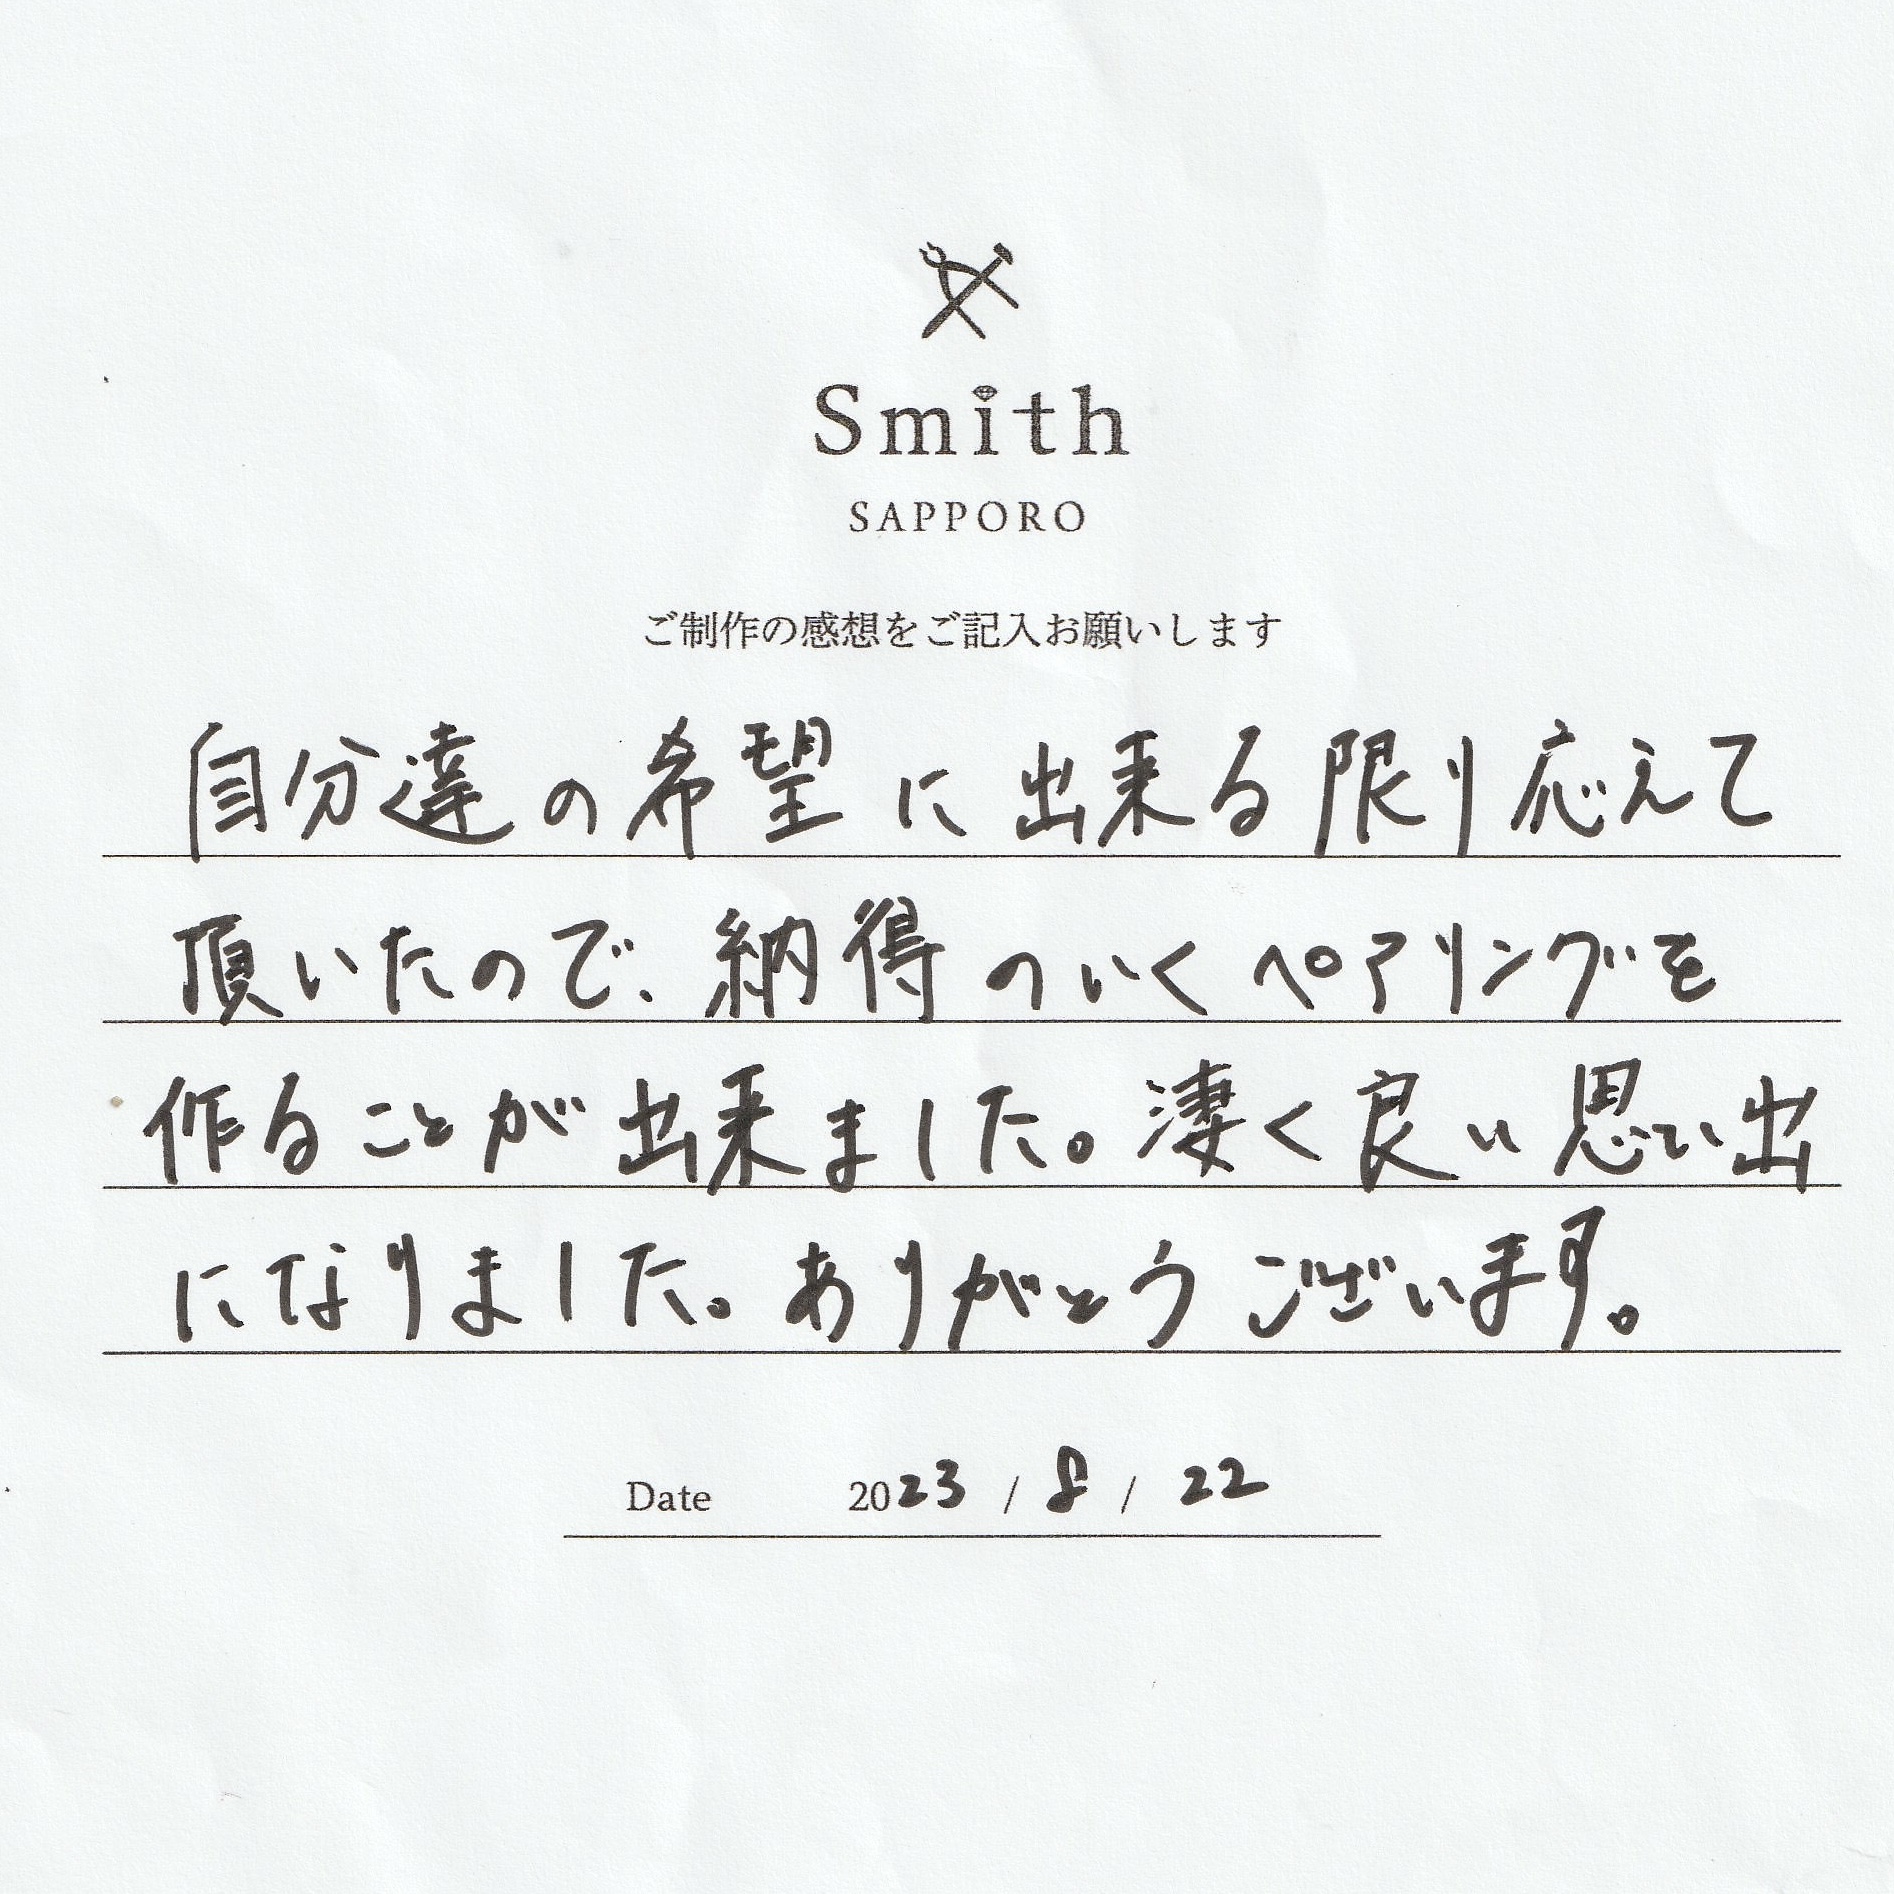 Smith
SAPPORO
ご制作の感想をご記入お願いします
自分達の希望に出来る限り応えて
頂いたので、納得のいくペアリングを
作ることが出来ました。凄く良い思い出
になりました。ありがとうございます。
Date 2023 / 8 / 22